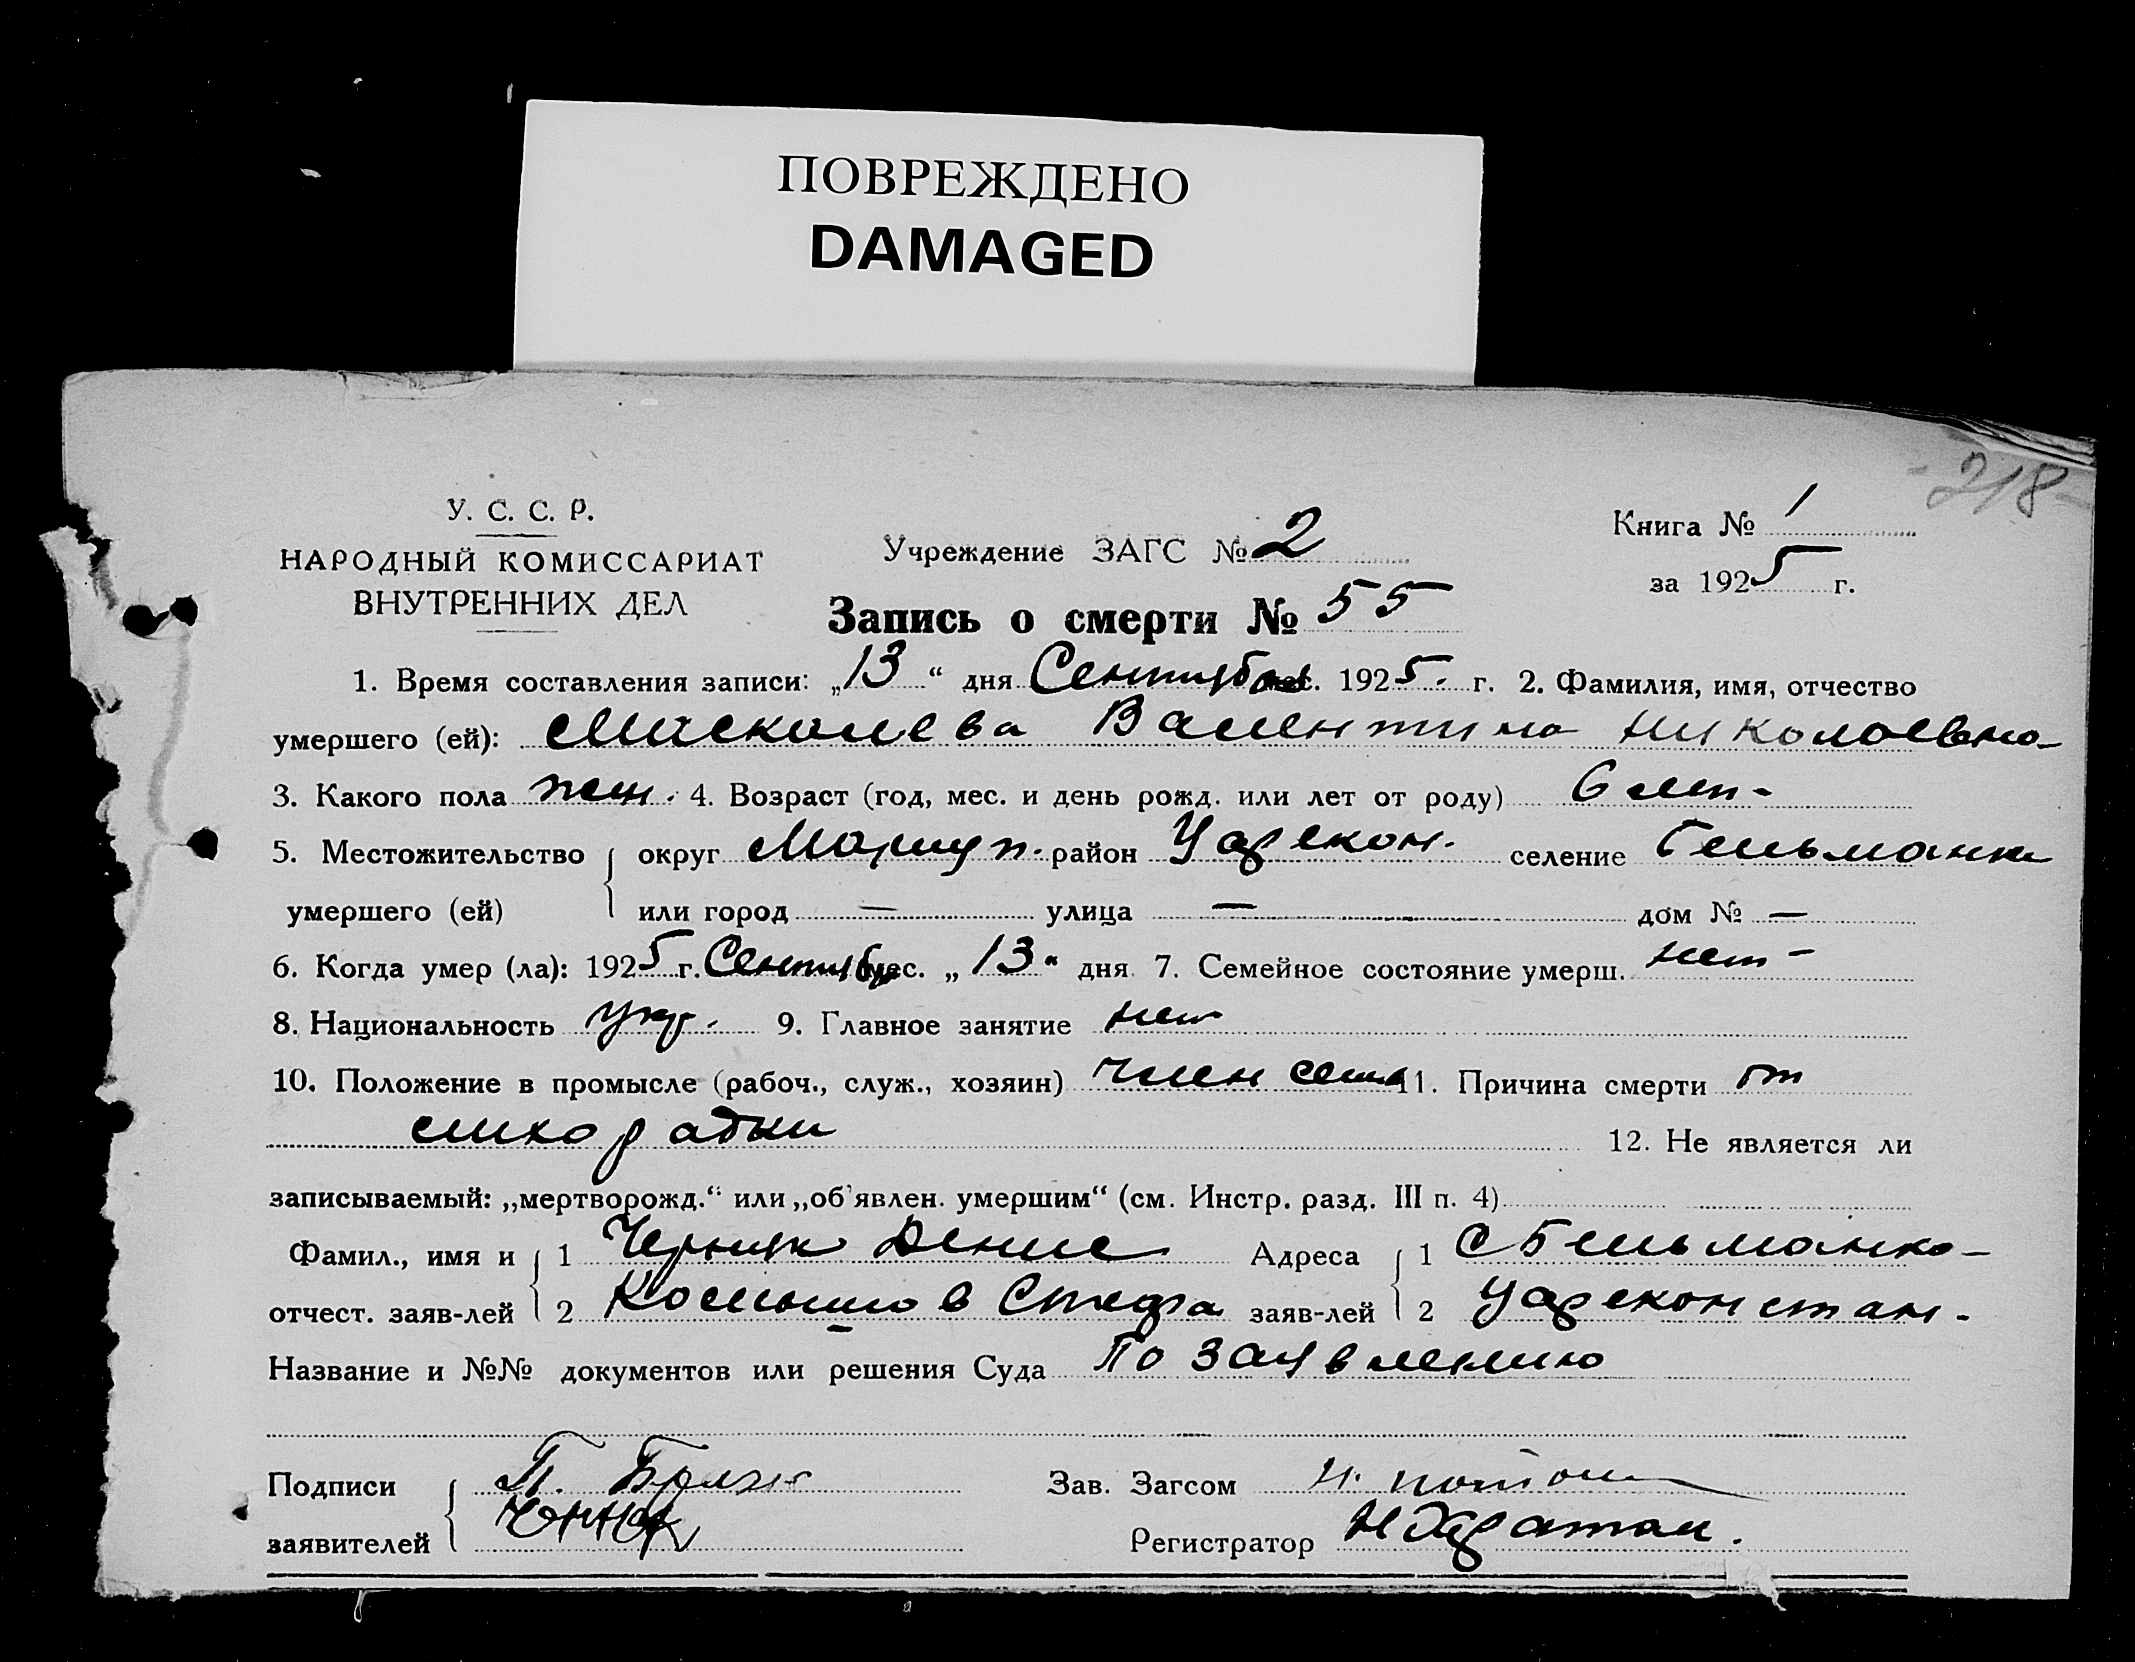 ПОВРЕЖДЕНО
DAMAGED
-218-
У. С. С. Р.
НАРОДНЫЙ КОМИССАРИАТ
ВНУТРЕННИХ ДЕЛ
Учреждение ЗАГС № 2
Книга № 1
за 1925 г.
Запись о смерти № 55
1. Время составления записи: „13“ дня Сентября мес. 1925. г. 2. Фамилия, имя, отчество
умершего (ей): Валентина Николаевна
3. Какого пола жен. 4. Возраст (год, мес. и день рожд. или лет от роду) 6 лет -
5. Местожительство округ Мариуп. район Царекон. селение Бельманка
умершего (ей) или город — улица — дом № —
6. Когда умер (ла): 1925 г. Сентября мес. „13“ дня 7. Семейное состояние умерш. нет -
8. Национальность укр. 9. Главное занятие нет
10. Положение в промысле (рабоч., служ., хозяин) член семьи 11. Причина смерти от
лихорадки 12. Не является ли
записываемый: „мертворожд.“ или „об'явлен. умершим“ (см. Инстр. разд. III п. 4)
Фамил., имя и 1 Денис Адреса 1 с Бельманка -
отчест. заяв-лей 2 заяв-лей 2 Цареконстан.
Название и №№ документов или решения Суда по заявлению
Подписи П. Зав. Загсом
заявителей Регистратор